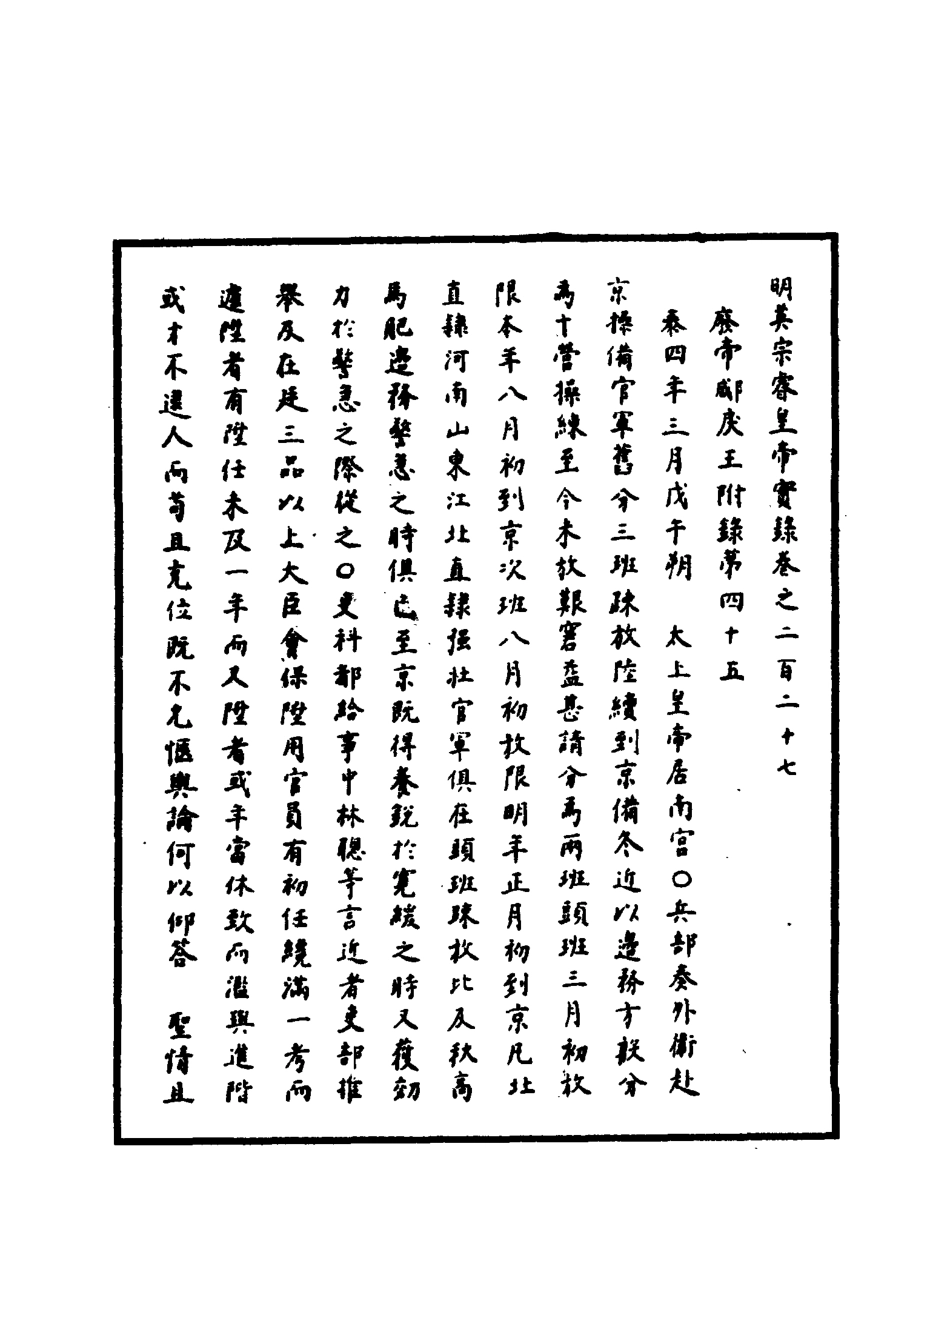 明英宗睿皇帝實錄卷之二百二十七
廢帝郕戾王附錄第四十五
泰四年三月戊午朔　太上皇帝居南宫○兵部奏外衞赴
京操備官軍舊分三班踈放陸續到京備冬近以邊務方殷分
為十營操練至今未放艱窘益甚請分為兩班頭班三月初放
限本年八月初到京次班八月初放限明年正月初到京凡北
直隸河南山東江北直隸强壯官軍俱在頭班踈放比及秋高
馬肥邊務警急之時俱已至京既得養銳於寛緩之時又獲効
力於警急之際從之○吏科都給事中林聰等言近者吏部推
舉及在廷三品以上大臣會保陞用官員有初任纔滿一考而
遽陞者有陞任未及一年而又陞者或年當休致而濫與進階
或才不逮人而苟且充位既不允愜輿論何以仰答　聖情且